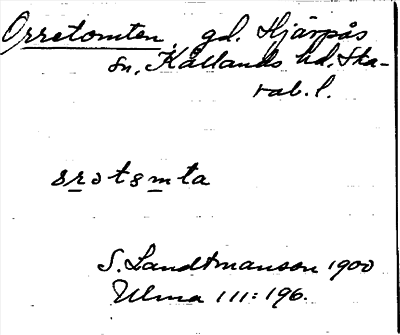 Orretomten, gd. Hjärpås
sn, Kållands hd. Ska-
rab. l.
S. Landtmanson 1900
Ulma 111:196.